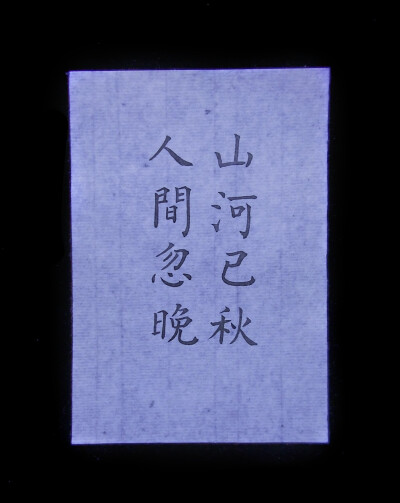 山河已秋
人間忽晚